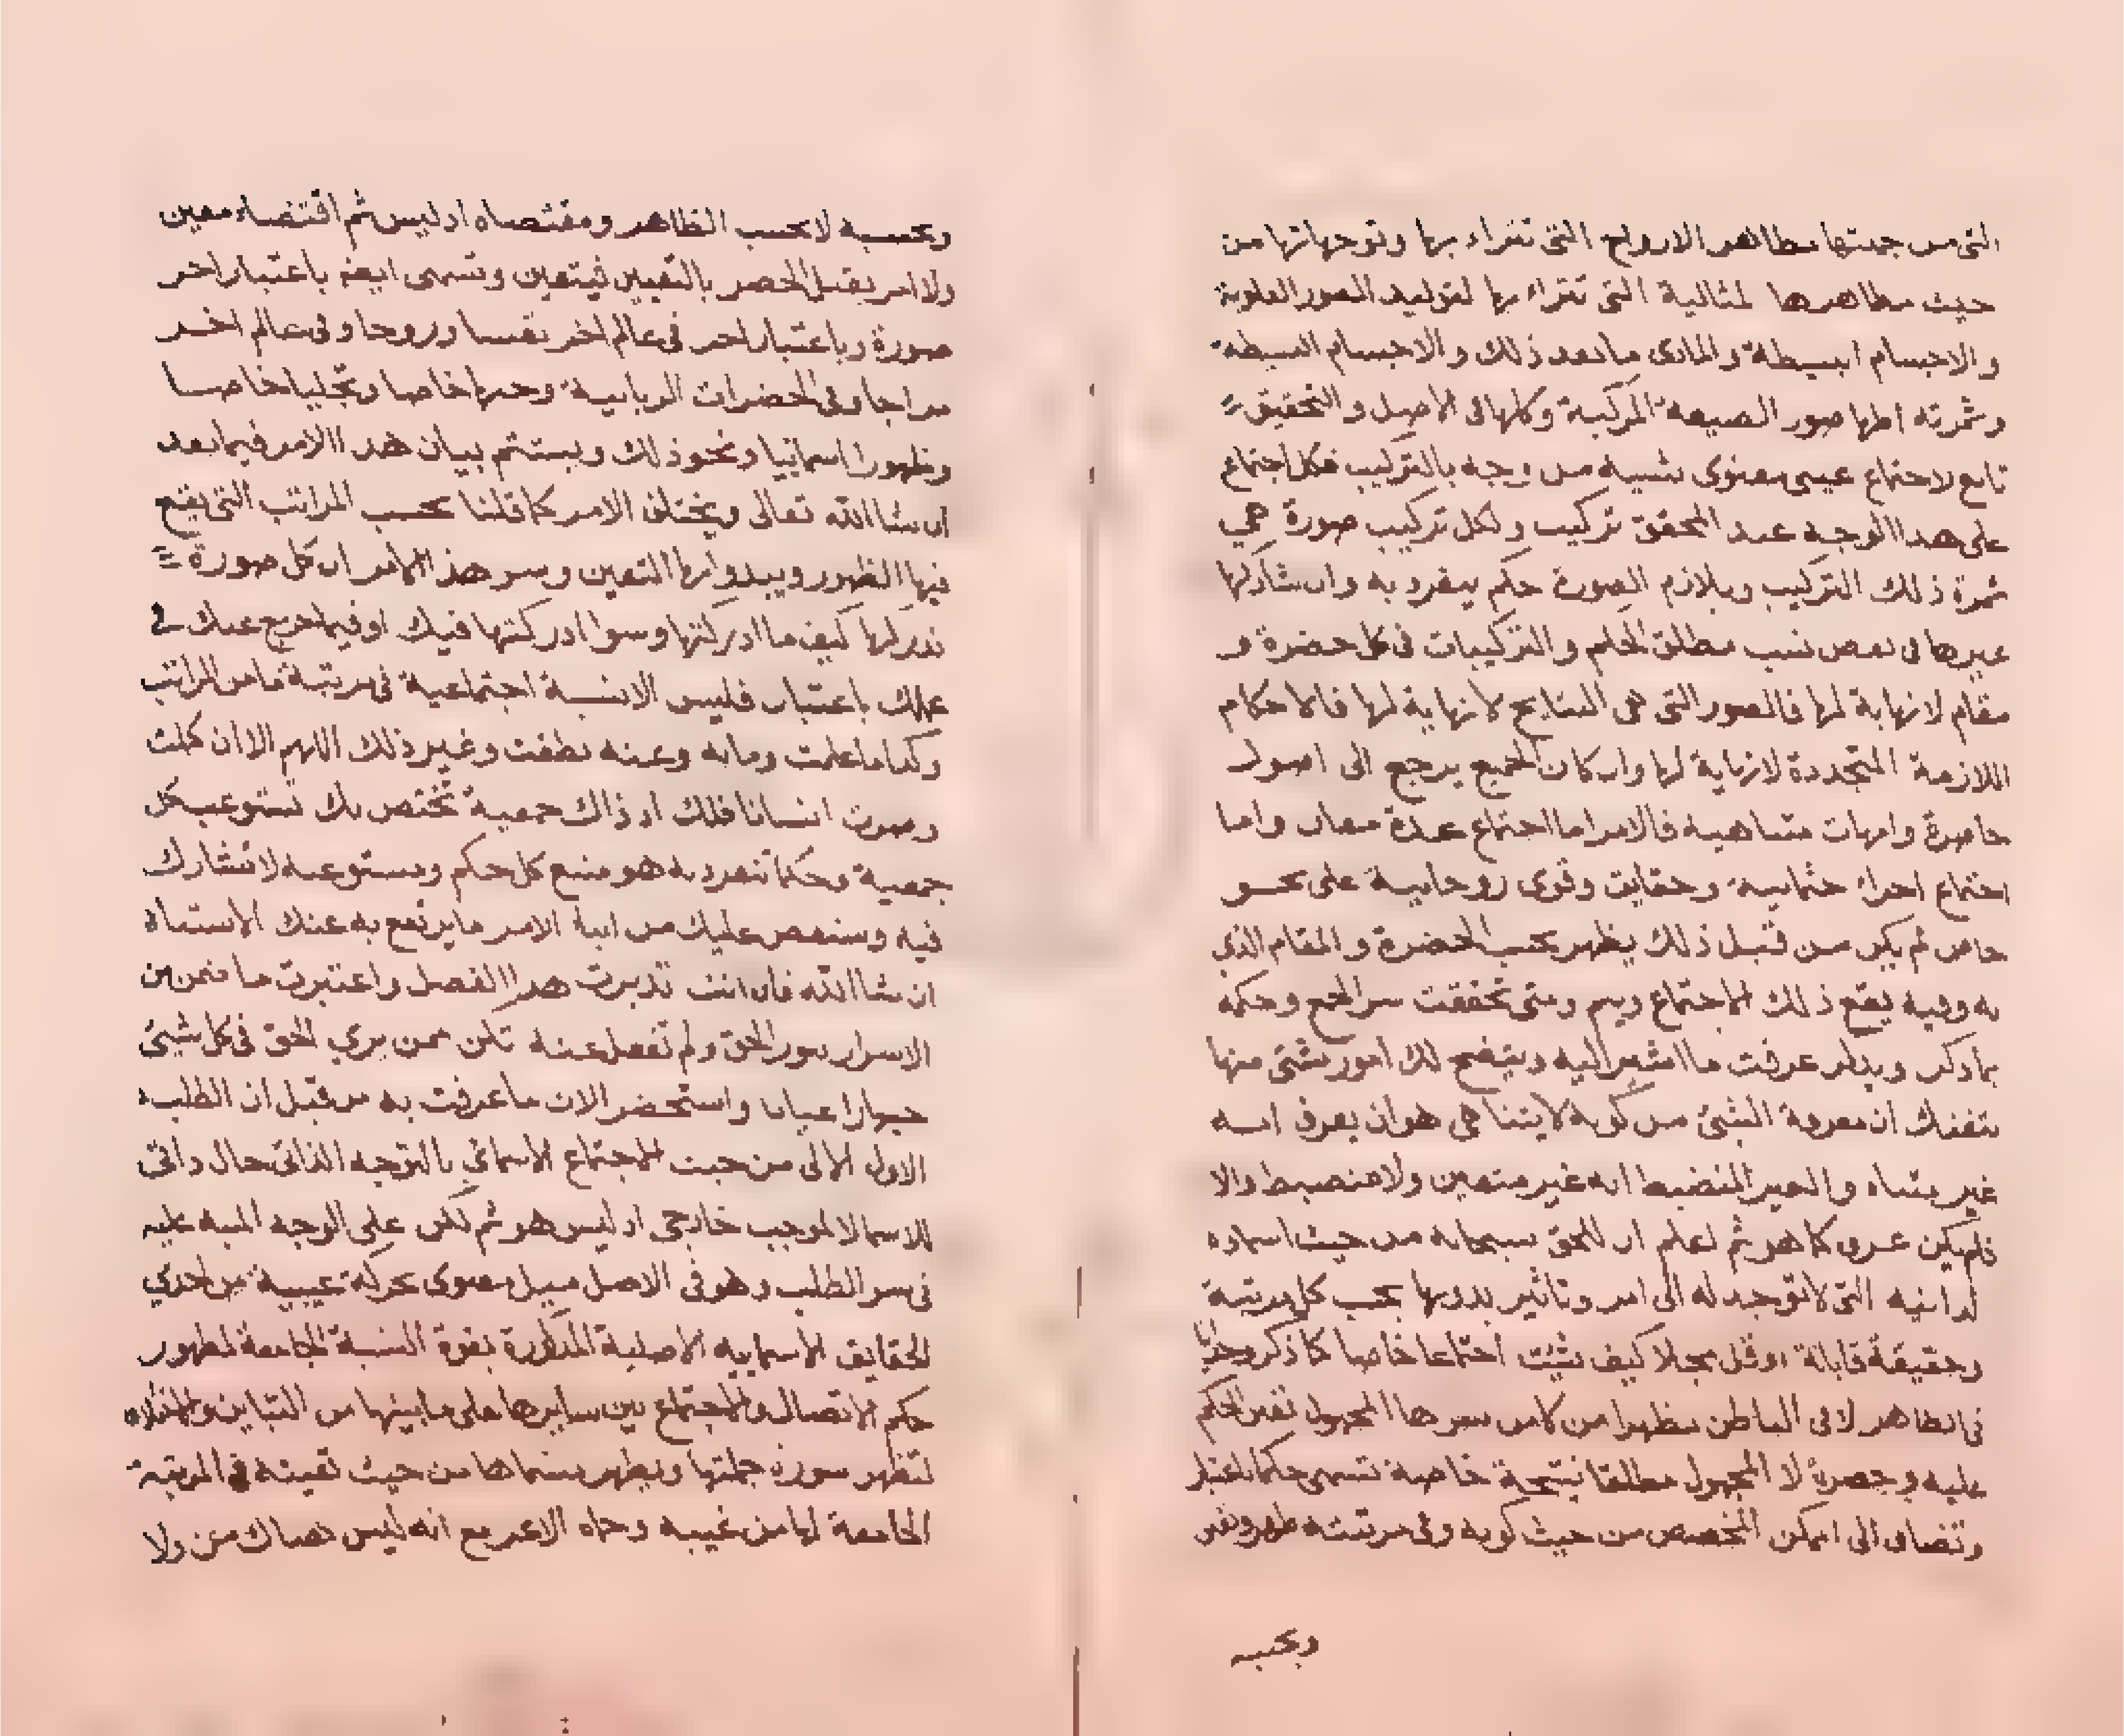 التى من جهتها مظاهر الارواح التى تتراء بها وتوجهاتها من
حيث مظاهرها لمثالية التى تتراء بها لتوليد الصور العلوية
والاجسام ابسيطة والمادى مابعد ذلك والاجسام البسيطة
وثمرته اظها صور الصيعة المركبة وكلها فى الاصل والتحقيق
تابع لاجتماع عيبى معنوى شبيه من وجه بالتركيب فكل اجتماع
على هدا الوجه عند المحقق تركيب ولكل تركيب صورة هي
ثمرة ذلك التركيب ويلازم الصورة حكم ينفرد به وان شاركها
عيرها فى بعض نسب مطلق الحكم والتركيبات فى كل حضرة و
مقام لانهاية لها فالصور التى هى النتايج لانهاية لها فالاحكام
اللازمة المتجددة لانهاية لها وان كان الجميع يرجع الى اصول
حاصرة وامهات متناهيه فالامر اما اجتماع عدة معان واما
اجتماع اجزاء حثمانية وحقايق وقوى روحانية على نحو
خاص لم يكن من قبل ذلك يظهر بحسب الحضرة والمقام الذي
به وفيه يقع ذلك الاجتماع ويسم ومتى تحققت سر الجمع وحكمه
بماذكر عرفت ما اشير اليه ويتضح لك امور شتى منها
تيقنك ان معرفة الشئ من كونه لايتناهى هو ان يعرف انه
غير متناه والغير المنضبط انه غير متعين ولا منضبط والا
فلم يكن عرف كما هو ثم لعلم ان للحق سبحانه من حيث اسماوه
لذاتيه التى لاتوجد له الى امر وتاثير بدونها بحسب كل مرتبة
وحقيقة قابلة اوقل مجلا كيف شئت اجتماعا خاصا كما ذكر
فى الظاهر لافى الباطن مظهرا من كامن سرها المجهول تعين الحكم
عليه وحصرة لا المجهول مطلقا نتيجة خاصة تسمى حكما باعتبار
وتضاف الى الممكن المخصص من حيث كونه وفى مرتبته ظهر وتعين
وبحسبه
وبحسبه لابحسب الظاهر ومقتضاه اذ ليس ثم اقتضاء معين
ولا امر يقبل الحصر بالتعيين فيتعين وتسمى ايضا باعتبار اخر
صورة وباعتبار اخر فى عالم اخر نفسا وروحا وفى عالم اخر
مزاجا وفى الحضرات الربانية وجها خاصا وتجليا خاصا
وظهورا اسمائيا ونحو ذلك ويستتم بيان هدا الامر فيما بعد
ان شا الله تعالى ويختلف الامر كما قلنا بحسب المراتب التى يقع
فيها الظهور ويبدوا بها التعين وسر هذ الامر ان كل صورة
تدركها كيف ما ادركتها وسوا ادركتها فيك او فيما خرج عنك فى
عملك باعتبار فليس الانسبة اجتماعية فى مرتبة ما من المراتب
وكذا ماعلمت ومابه وعنه نطقت وغير ذلك اللهم الا ان كملت
وصرت انسانا فلك اذ ذاك جمعية تختص بك تستوعب كل
جمعية وحكما تنفرد به هو منبع كل حكم ويستوعبه لاتشارك
فيه وسنقص عليك من انباء الامر مايرتفع به عنك الاشتباه
ان شا الله فان انت تدبرت هدا الفصل واعتبرت ما ضمن من
الاسرار بنور الحق ولم تغفل عنه تكن ممن يري الحق فى كل شئ
جهارا عيانا واستحضر الان ماعرفت به من قبل ان الطلب
الاول الالى من حيث الاجتماع الاسمائي بالتوجه الذاتى حال ذاتى
للاسما لا لموجب خارجى اذ ليس هو ثم لكن على الوجه المنبه عليه
فى سر الطلب وهو فى الاصل ميل معنوى بحركة عيبية من احدي
الحقايق الاسمائيه الاصلية المذكورة بقوة النسبة الجامعة لظهور
حكم الاتصال والاجتماع بين سايرها على مابينها من التباين
لتظهر صورة جملتها ويظهر مسماها من حيث تعينه فى المرتبة
الجامعة لها من غيبه وحاه الاعز مع انه ليس هناك من ولا